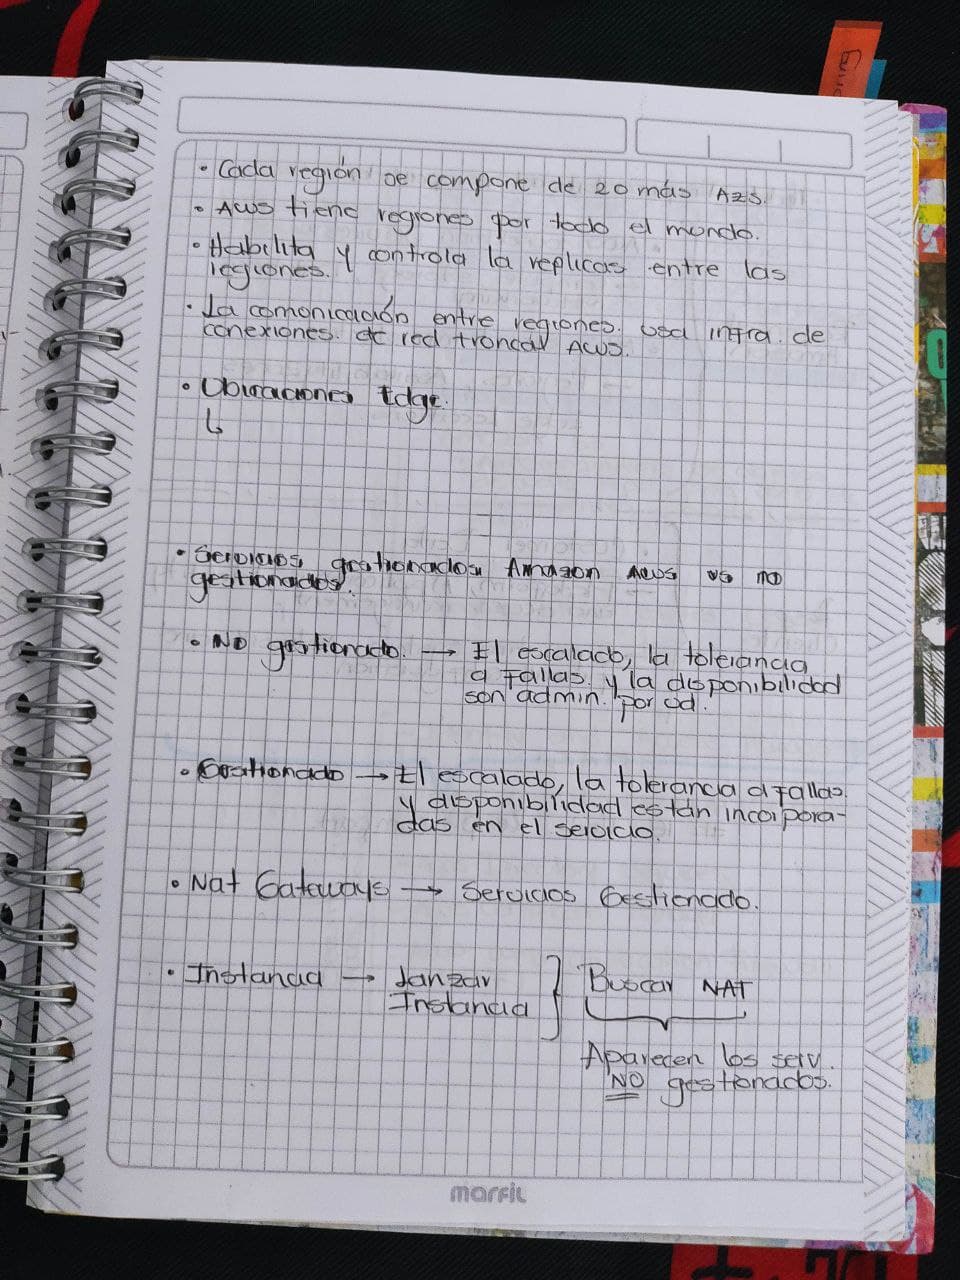 • Cada región se compone de 2 o más AZs.
• AWS tiene regiones por todo el mundo.
• Habilita y controla la replicas entre las
regiones.
• La comonicación entre regiones. usa infra. de
conexiones. de red troncal AWS.
• Ubicaciones Edge.
↳
• Servicios gestionados Amazon AWS vs no
gestionados.
• NO gestionado. → El escalado, la tolerancia
a fallas. y la disponibilidad
son admin. por ud.
• Gestionado → El escalado, la tolerancia a fallas.
y disponibilidad están incorpora-
das en el servicio.
• Nat Gateways → Servicios Gestionado.
• Instancia → Lanzar
Instancia } Buscar NAT
Aparecen los serv.
NO gestionados.
marfil